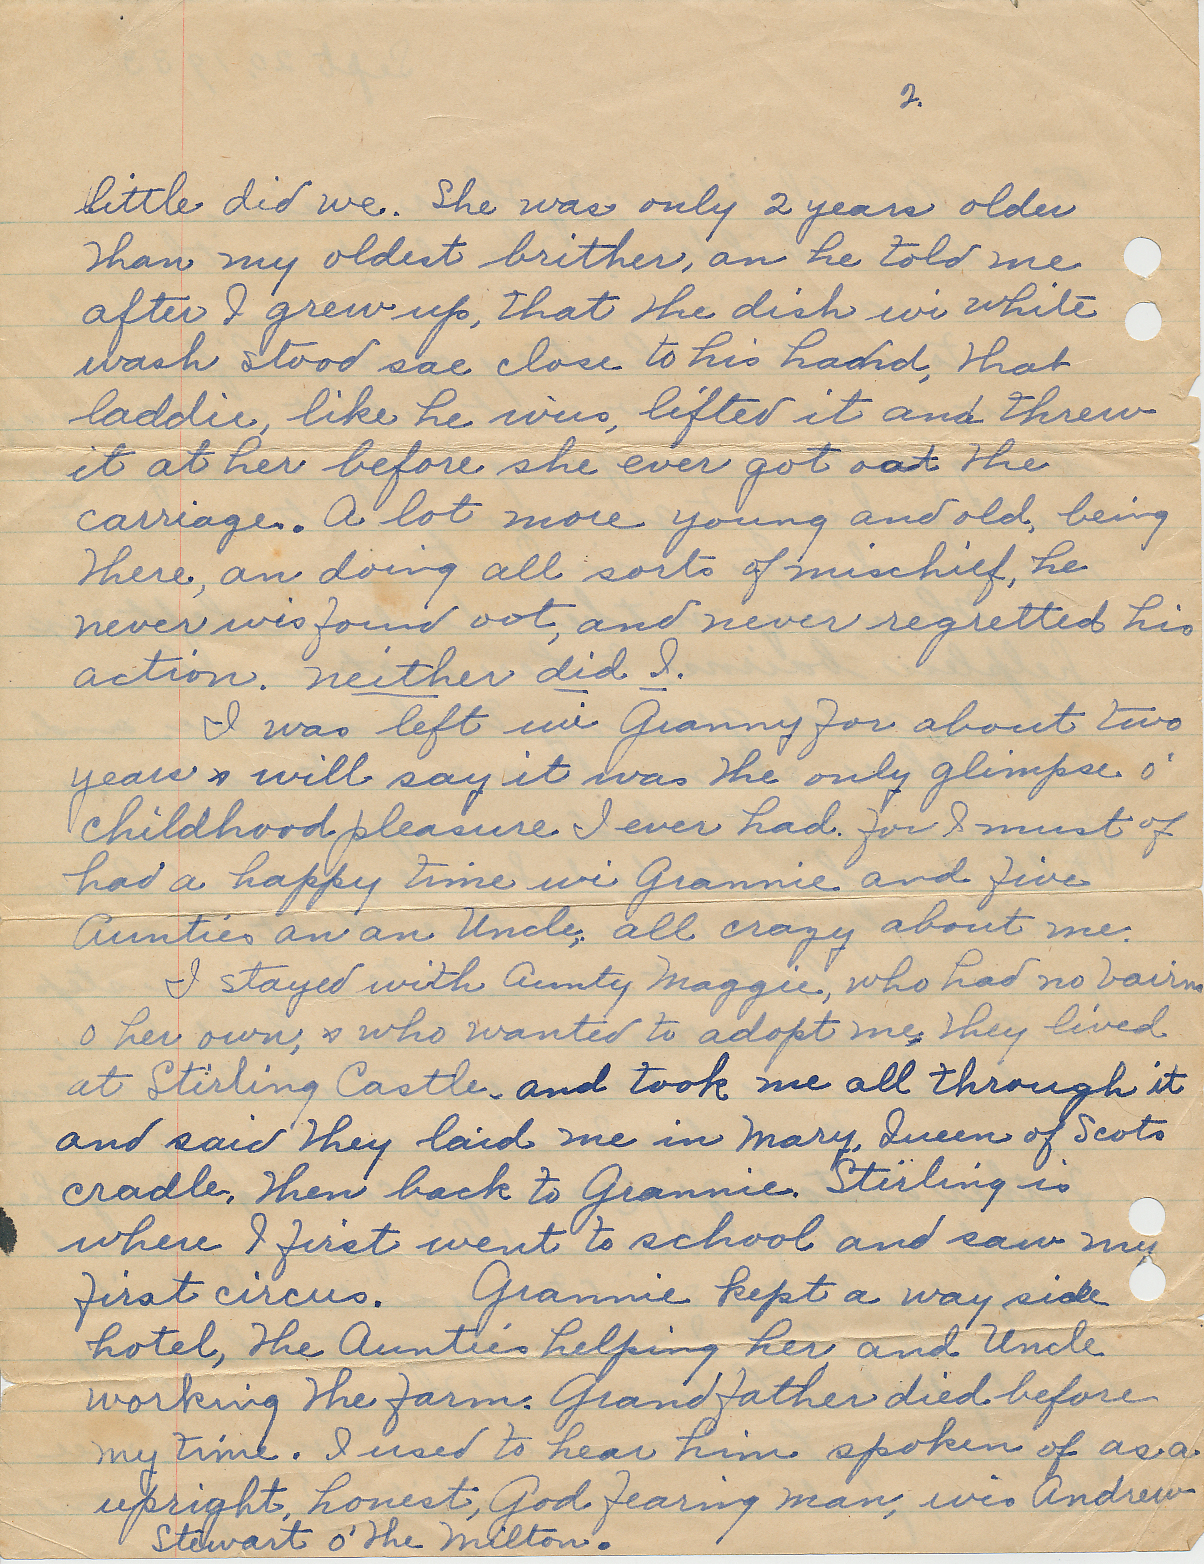 2.
little did we. She was only 2 years older
than my oldest brither, an he told me
after I grew up, that the dish wi white
wash stood sae close to his haand, that
laddie, like he wus, lifted it and threw
it at her before she ever got oot the
carriage. A lot more young and old, being
there, an doing all sorts of mischief, he
never wis found oot, and never regretted his
action. neither did I.
I was left wi Granny for about two
years & will say it was the only glimpse o'
childhood pleasure I ever had. for I must of
had a happy time wi Grannie and five
Aunties an an Uncle, all crazy about me.
I stayed with Aunty Maggie, who had no bairns
o her own, & who wanted to adopt me, they lived
at Stirling Castle. and took me all through it
and said they laid me in Mary, Queen of Scots
cradle, then back to Grannie. Stirling is
where I first went to school and saw my
first circus. Grannie kept a way side
hotel, the Aunties helping her and Uncle
working the farm. Grandfather died before
my time. I used to hear him spoken of as a
upright, honest, God fearing man, wis Andrew
Stewart o' the Milton.